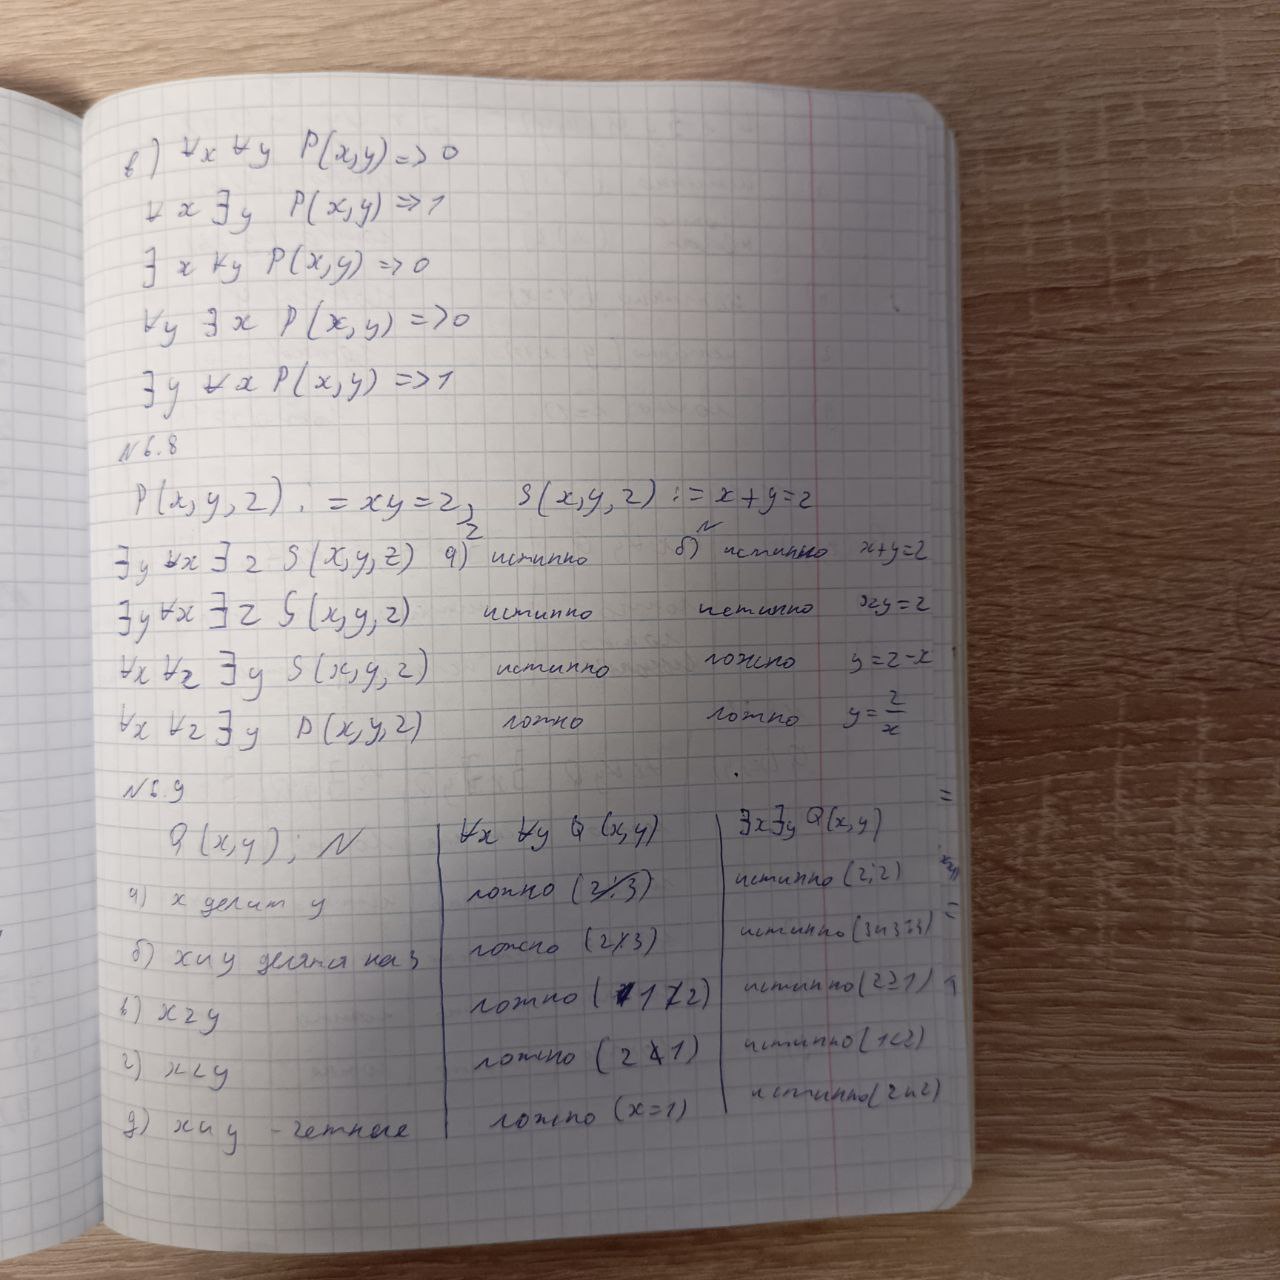 в) ∀x ∀y P(x,y) => 0
∀x ∃y P(x,y) => 1
∃x ∀y P(x,y) => 0
∀y ∃x P(x,y) => 0
∃y ∀x P(x,y) => 1
N 6.8
P(x,y,z) := xy=z, S(x,y,z) := x+y=z
Z N
∃y ∀x ∃z S(x,y,z) а) истинно б) истинно x+y=z
∃y ∀x ∃z S(x,y,z) истинно истинно xy=z
∀x ∀z ∃y S(x,y,z) истинно ложно y=z-x
∀x ∀z ∃y P(x,y,z) ложно ложно y=z/x
N 6.9
Q(x,y); N ∀x ∀y Q(x,y) ∃x∃y Q(x,y)
а) x делит y ложно (2⋮̸3) истинно (2;2)
б) x и y делятся на 3 ложно (2⋮̸3) истинно (3и3⋮3)
в) x≥y ложно (1≱2) истинно (2≥1)
г) x<y ложно (2≮1) истинно (1<2)
д) x и y - четные ложно (x=1) истинно (2и2)